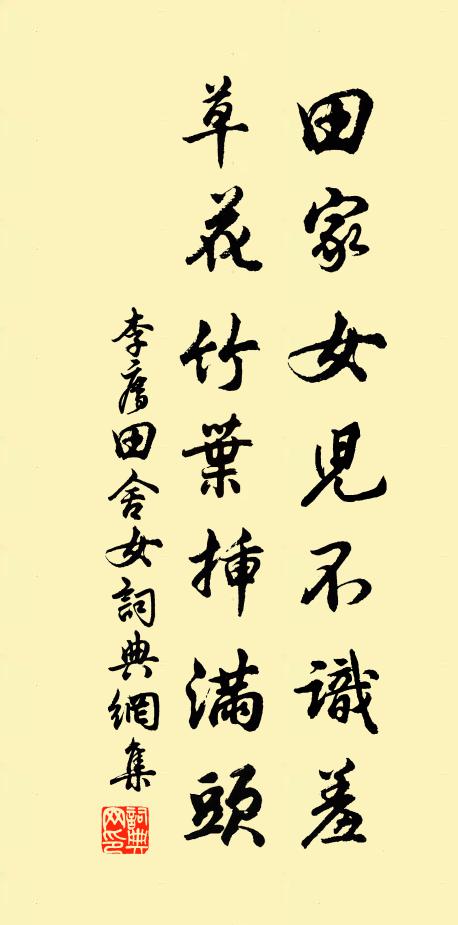 田家女兒不識羞
草花竹葉挿滿頭
李廌田舍女詞典網集
詞典
网印